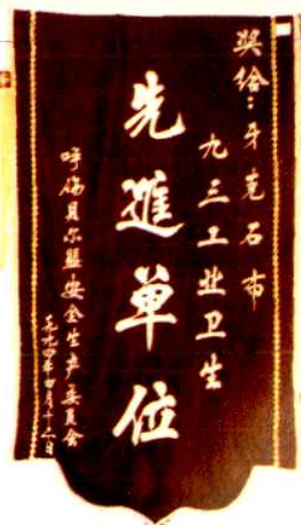 奖给：牙克石市
九三工业卫生
先進单位
呼伦贝尔盟安全生产委员会
一九九四年四月十二日